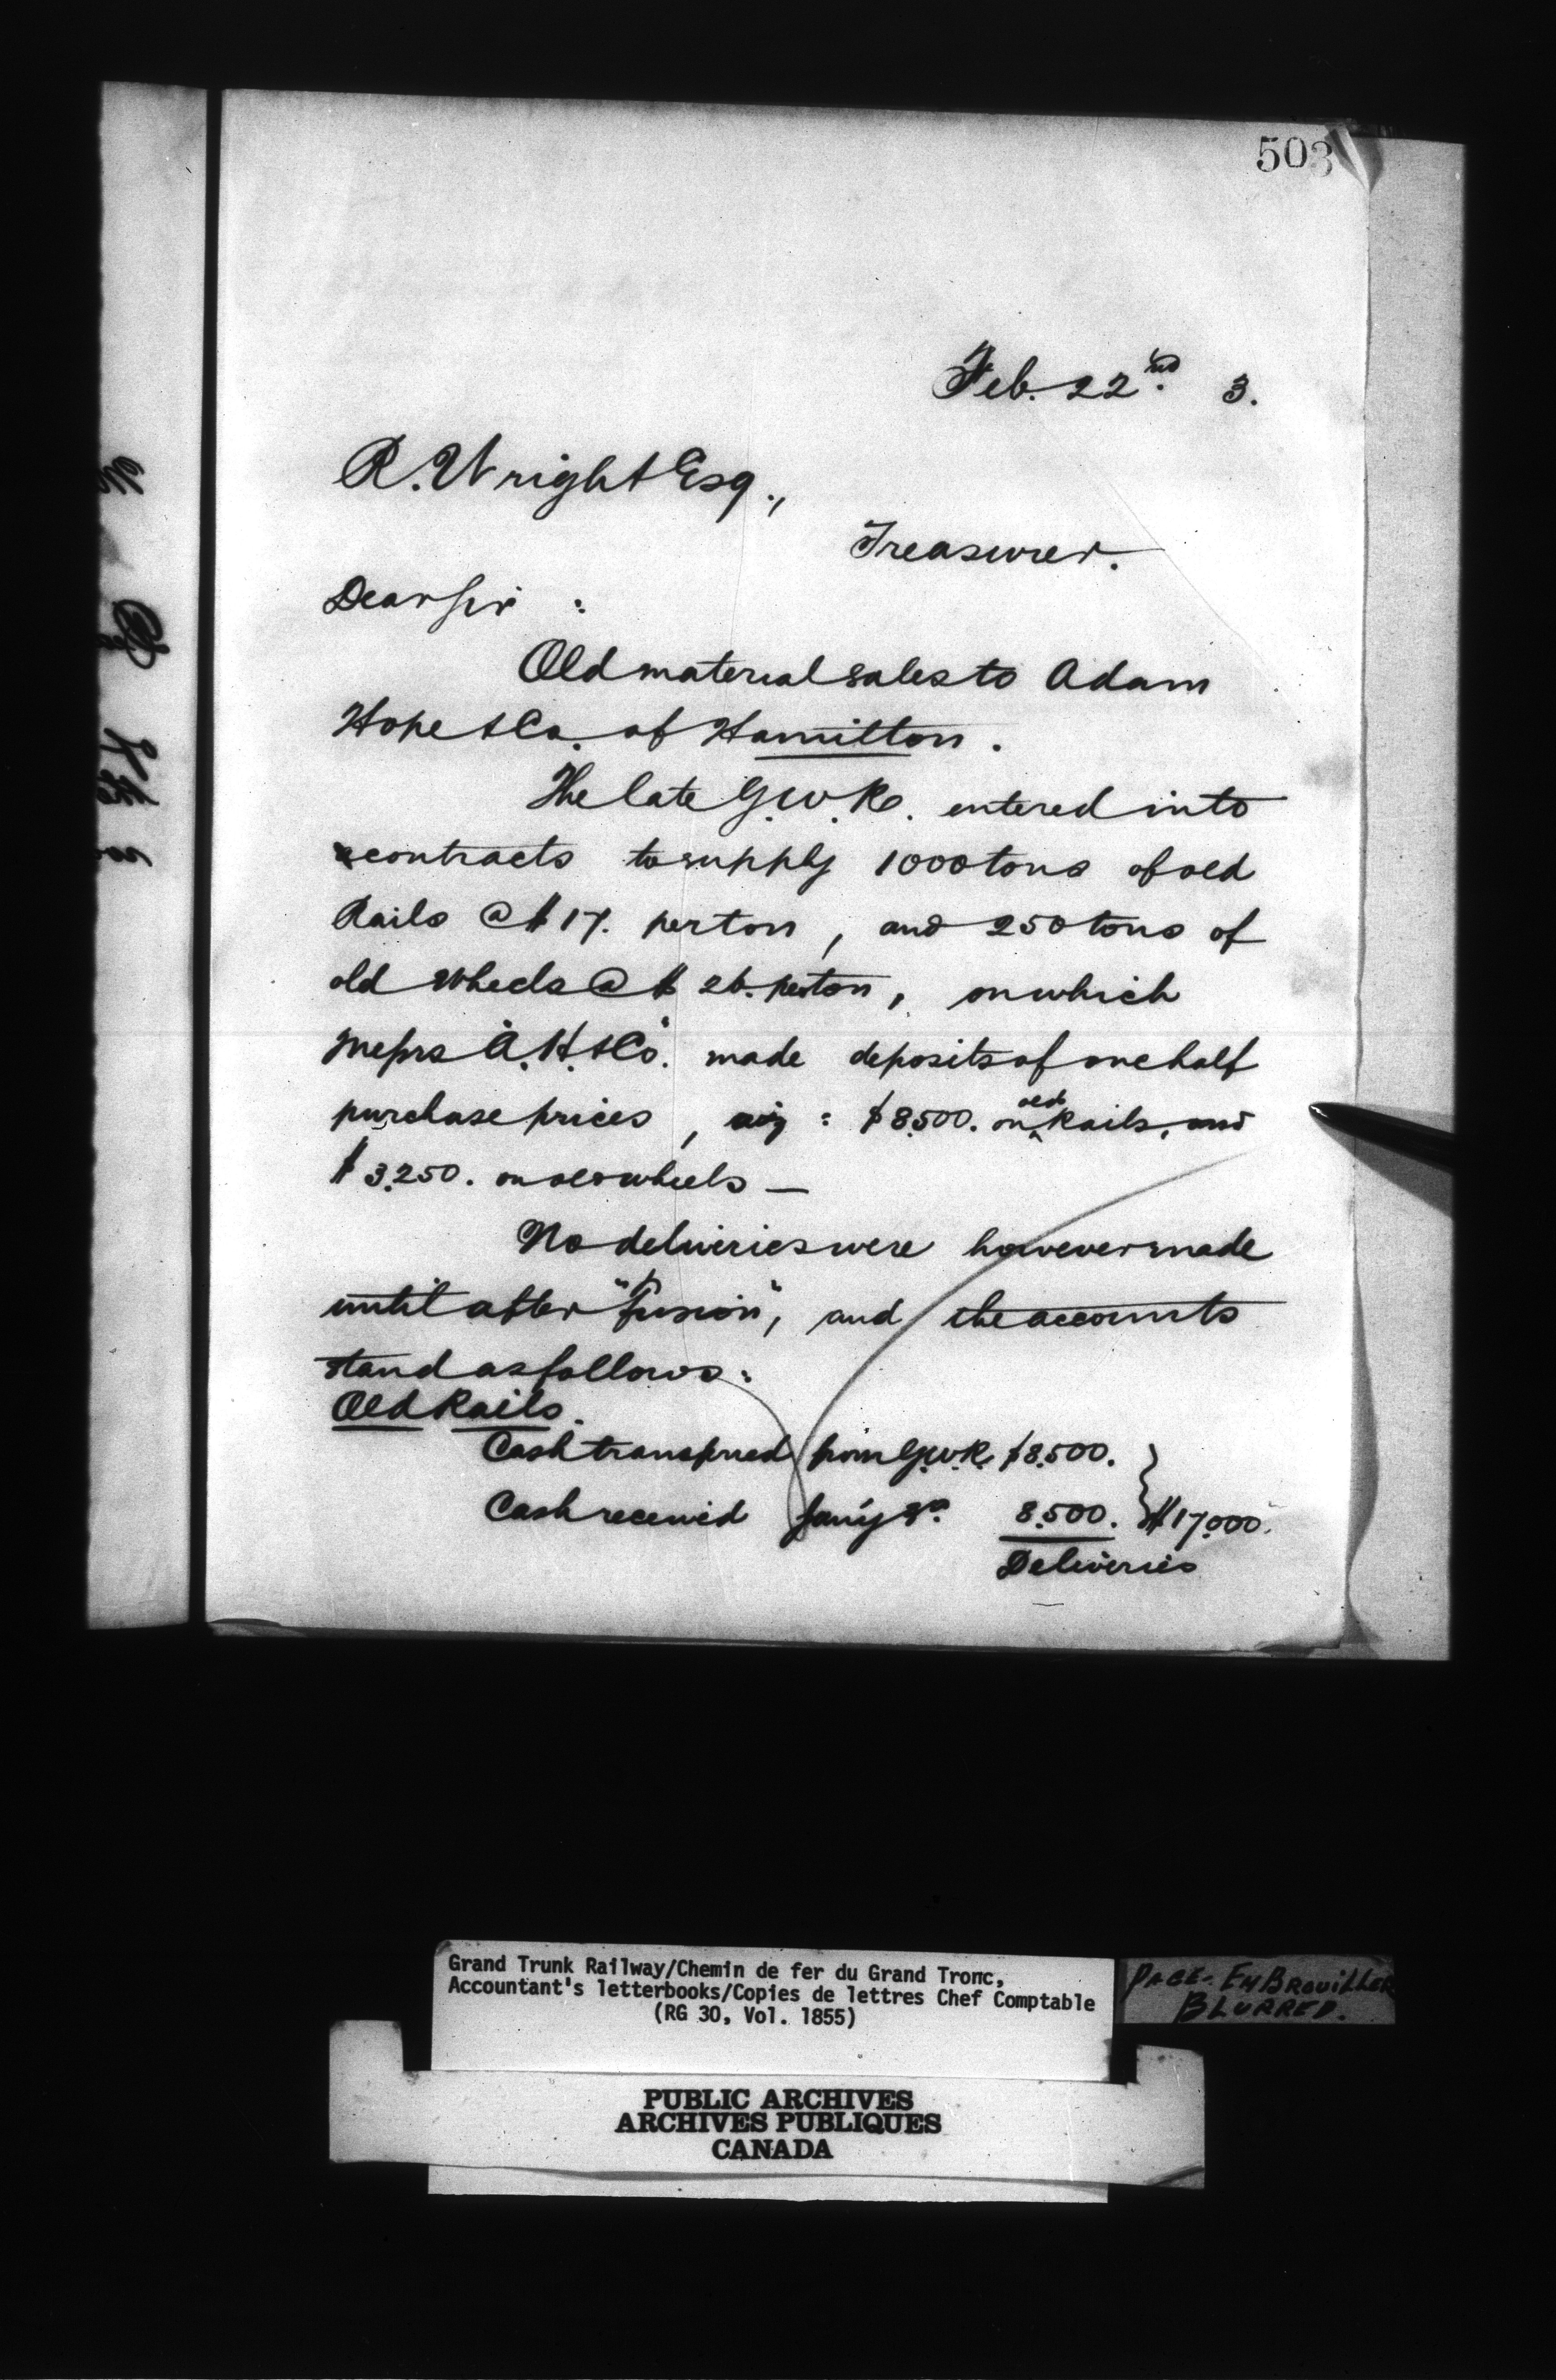 503
Feb. 22nd. 3.
R. Wright Esq.,
Treasurer.
Dear Sir :
Old material sales to Adam
Hope & Co. of Hamilton.
The late G.W.R. entered into
contracts to supply 1000 tons of old
Rails @ $17. per ton, and 250 tons of
old Wheels @ $26. per ton, on which
Messrs "A. H. & Co." made deposits of one half
purchase prices, viz : $8,500. on old Rails, and
$3,250. on old wheels —
No deliveries were however made
until after "fusion", and the accounts
stand as follows :
Old Rails.
Cash transferred from G.W.R. $8,500.
Cash received Jan'y 8,500. } $17,000.
Deliveries
Grand Trunk Railway/Chemin de fer du Grand Tronc,
Accountant's letterbooks/Copies de lettres Chef Comptable
(RG 30, Vol. 1855)
PAGE- EMBROUILLER
BLURRED.
PUBLIC ARCHIVES
ARCHIVES PUBLIQUES
CANADA